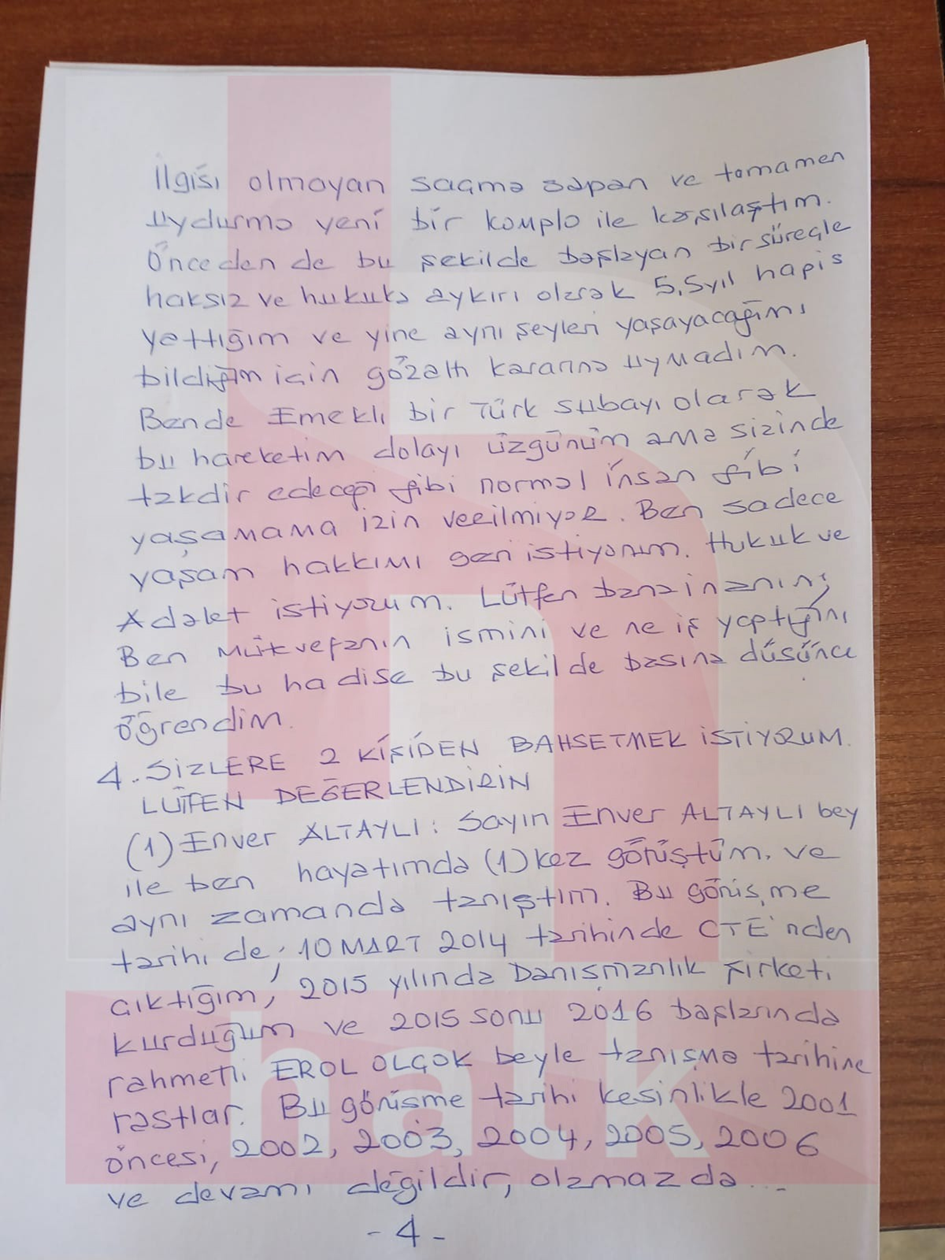 İlgisi olmayan saçma sapan ve tamamen
uydurma yeni bir komplo ile karşılaştım.
Önceden de bu şekilde başlayan bir süreçle
haksız ve hukuka aykırı olarak 5,5 yıl hapis
yattığım ve yine aynı şeyleri yaşayacağımı
bildiğim için gözaltı kararına uymadım.
Bende Emekli bir Türk subayı olarak
bu hareketim dolayı üzgünüm ama sizinde
takdir edeceği gibi normal insan gibi
yaşamama izin verilmiyor. Ben sadece
yaşam hakkımı geri istiyorum. Hukuk ve
Adalet istiyorum. Lütfen bana inanın;
Ben müteveffanın ismini ve ne iş yaptığını
bile bu hadise bu şekilde basına düşünce
öğrendim.
4. SİZLERE 2 KİŞİDEN BAHSETMEK İSTİYORUM.
LÜTFEN DEĞERLENDİRİN
(1) Enver ALTAYLI: Sayın Enver ALTAYLI bey
ile ben hayatımda (1) kez görüştüm. ve
aynı zamanda tanıştım. Bu görüşme
tarihi de; 10 MART 2014 tarihinde CTE'nden
çıktığım, 2015 yılında Danışmanlık şirketi
kurduğum ve 2015 sonu 2016 başlarında
rahmetli EROL OLÇOK beyle tanışma tarihine
rastlar. Bu görüşme tarihi kesinlikle 2001
öncesi, 2002, 2003, 2004, 2005, 2006
ve devamı değildir, olamaz da...
- 4 -
halk